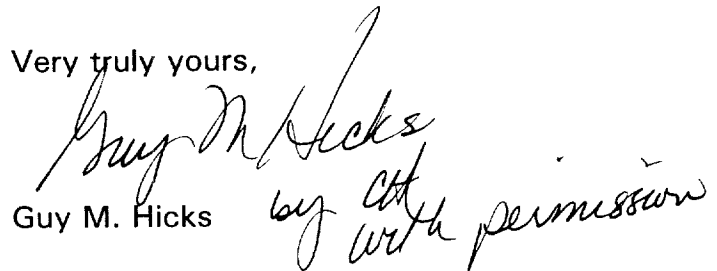 Very truly yours,
Guy M Hicks
Guy M. Hicks
by
with permission